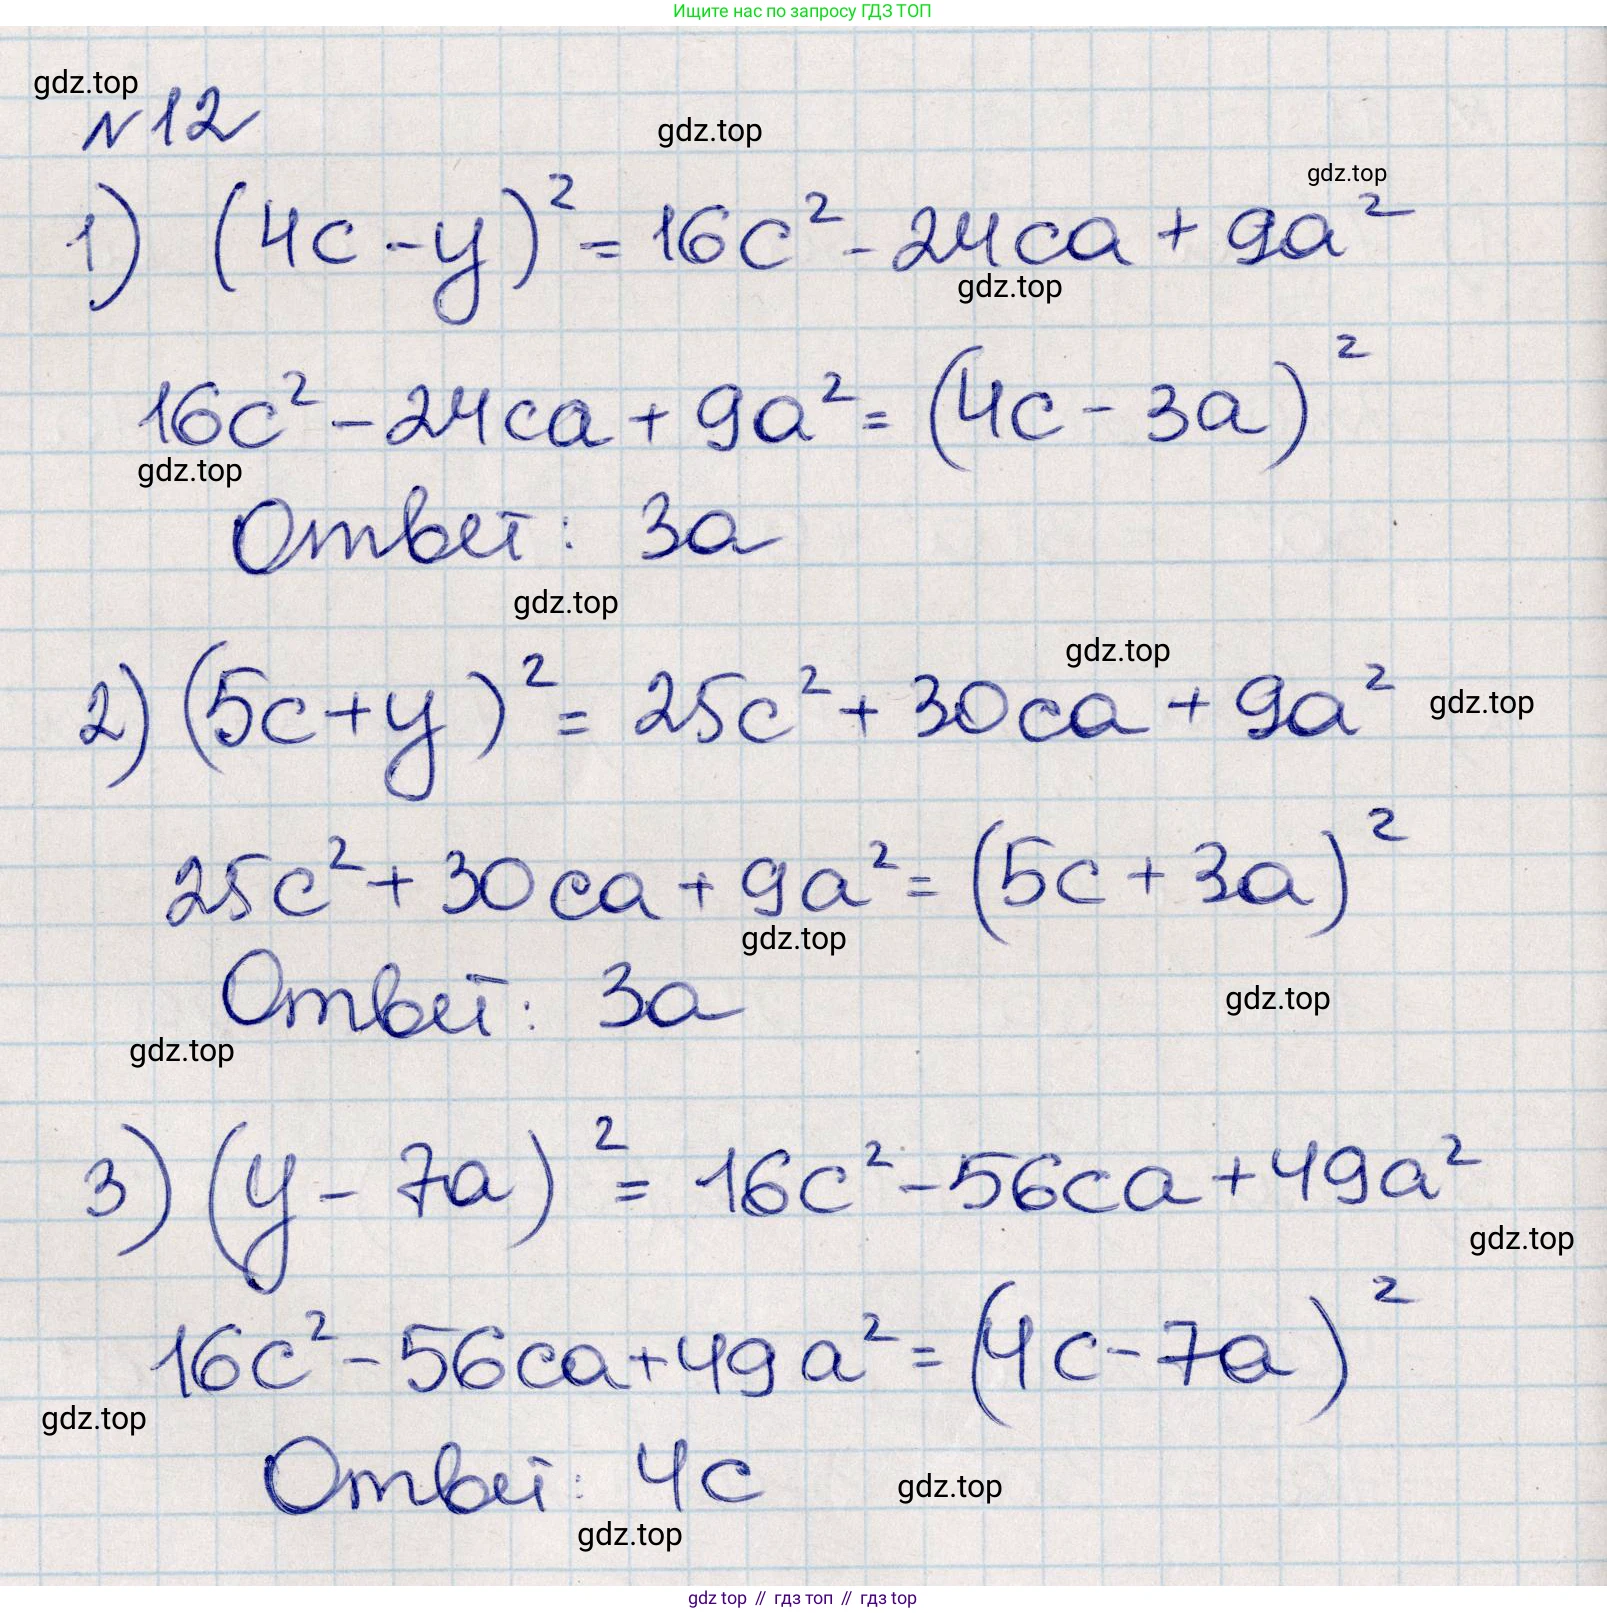 Ищите нас по запросу ГДЗ ТОП
gdz.top
№12
gdz.top
gdz.top
1) (4c - y)² = 16c² - 24ca + 9a²
gdz.top
16c² - 24ca + 9a² = (4c - 3a)²
gdz.top
Ответ: 3a
gdz.top
gdz.top
2) (5c + y)² = 25c² + 30ca + 9a²
gdz.top
25c² + 30ca + 9a² = (5c + 3a)²
gdz.top
Ответ: 3a
gdz.top
gdz.top
3) (y - 7a)² = 16c² - 56ca + 49a²
gdz.top
16c² - 56ca + 49a² = (4c - 7a)²
gdz.top
Ответ: 4c
gdz.top
gdz.top
gdz top // гдз топ // gdz top